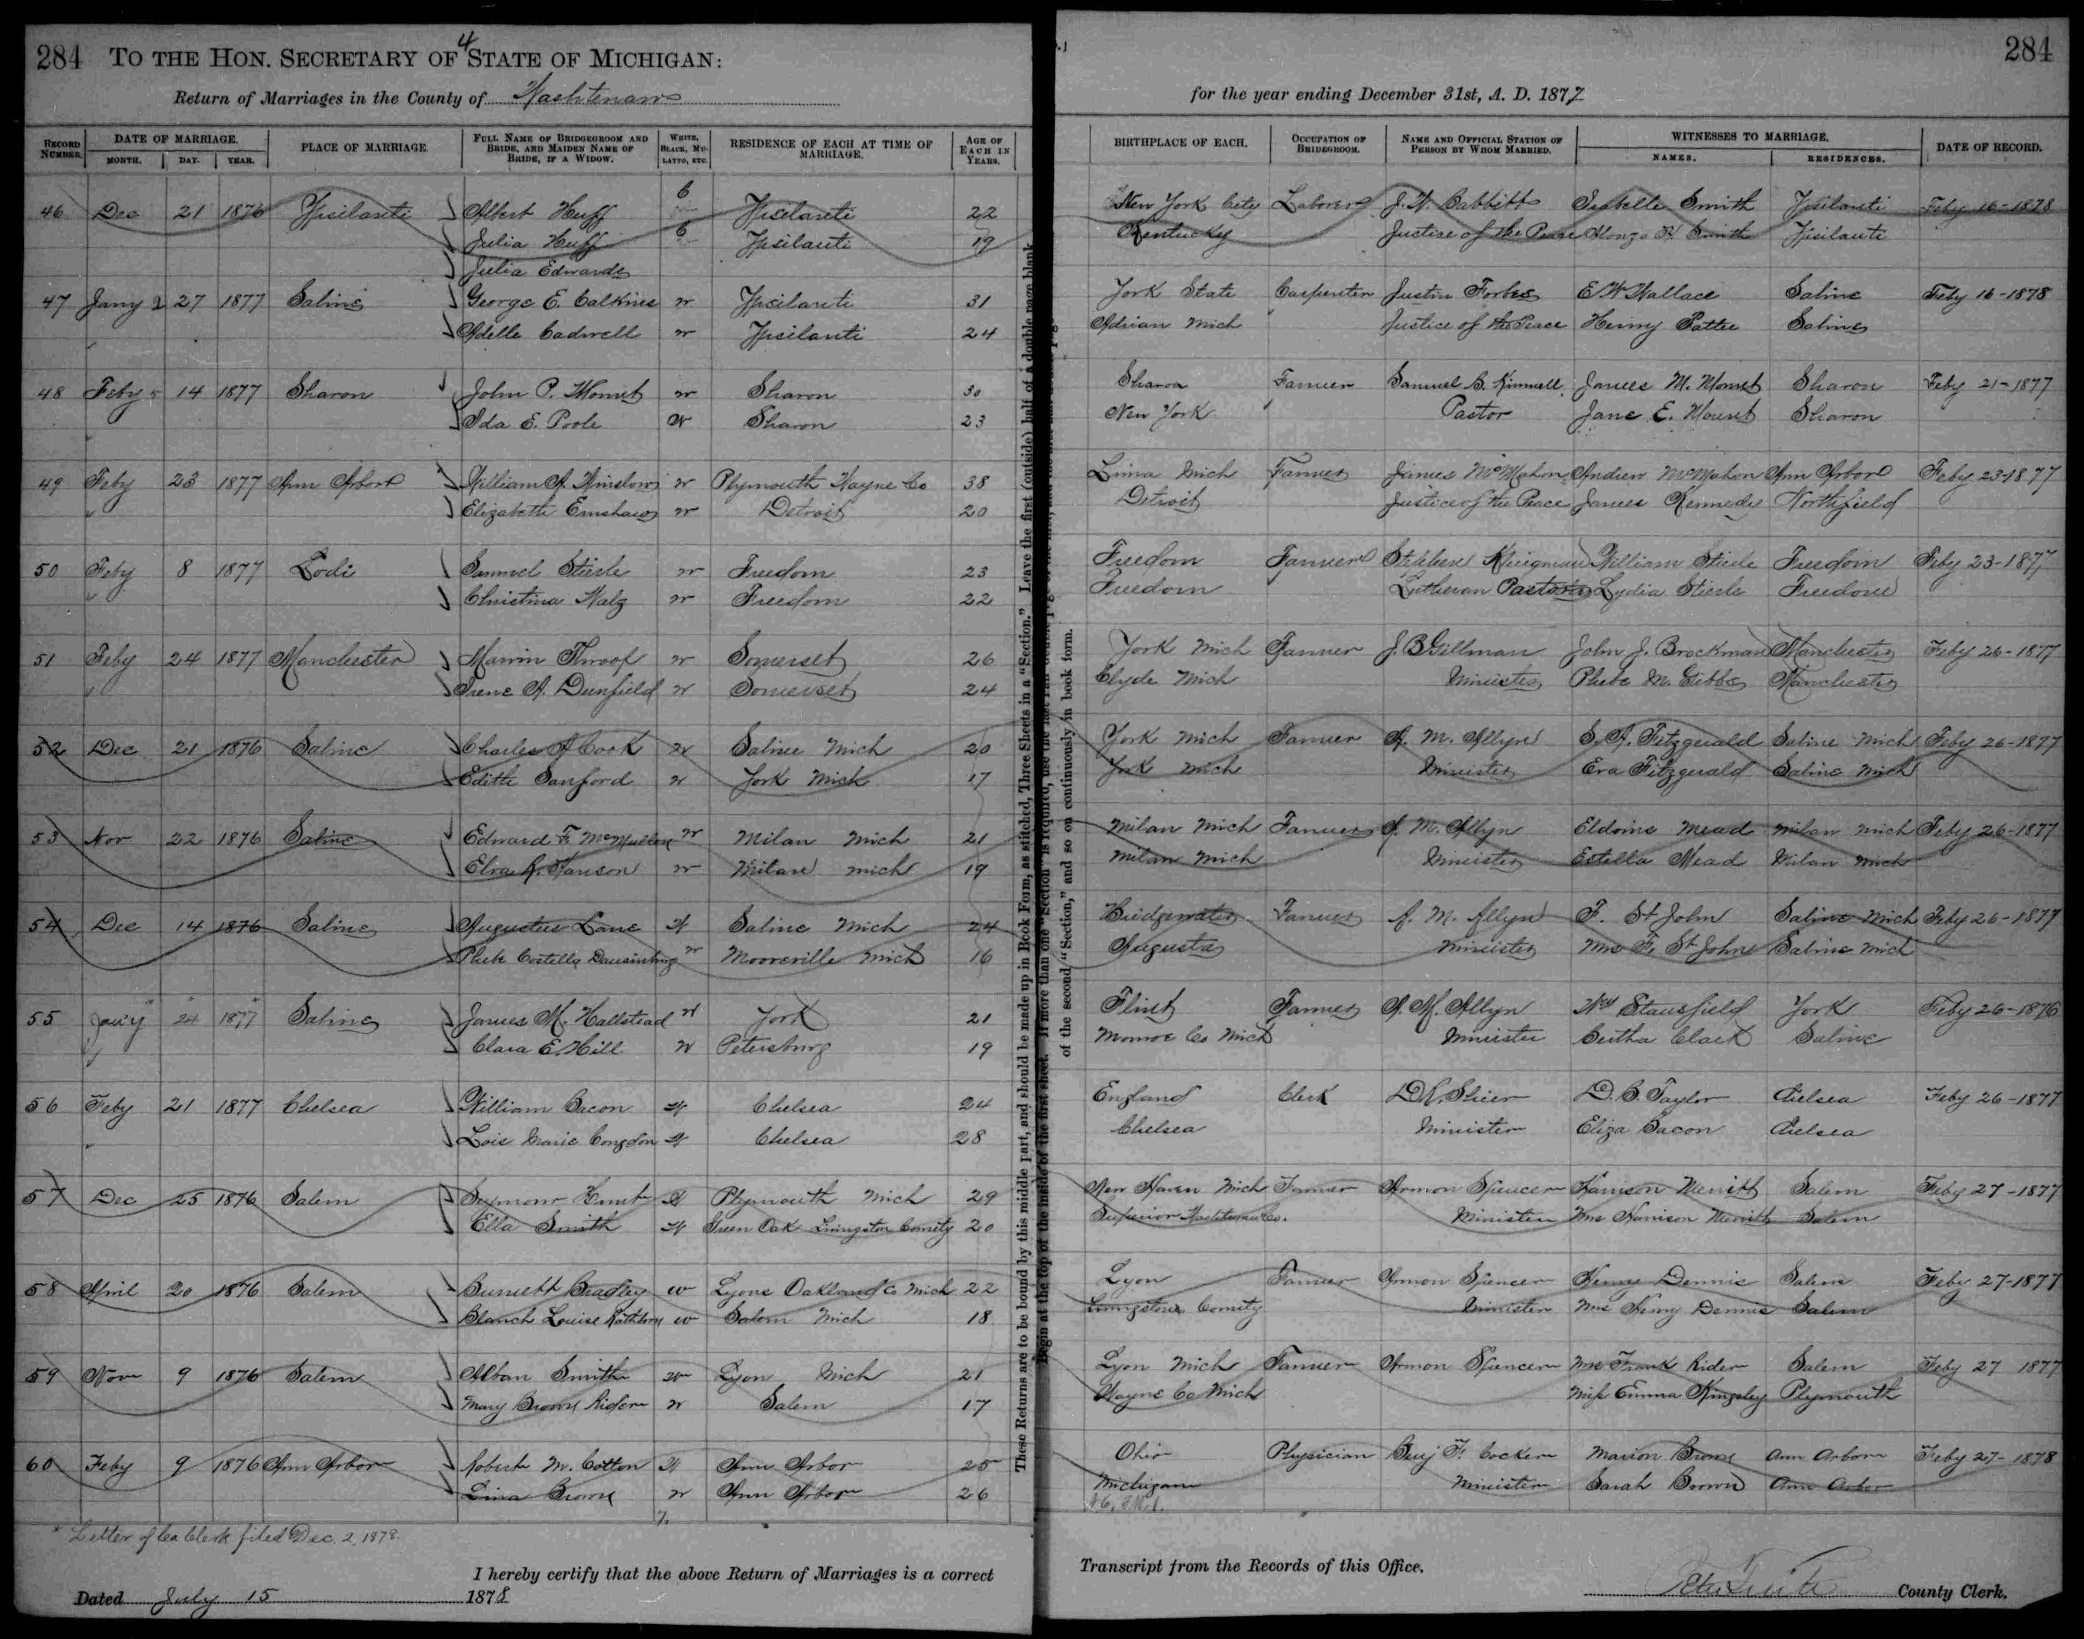 284 TO THE HON. SECRETARY OF STATE OF MICHIGAN:
4
Return of Marriages in the County of Washtenaw
RECORD NUMBER. DATE OF MARRIAGE. MONTH. DAY. YEAR. PLACE OF MARRIAGE. FULL NAME OF BRIDEGROOM AND BRIDE, AND MAIDEN NAME OF BRIDE, IF A WIDOW. WHITE, BLACK, MULATTO, ETC. RESIDENCE OF EACH AT TIME OF MARRIAGE. AGE OF EACH IN YEARS.
46 Dec 21 1876 Ypsilanti Albert Huff C Ypsilanti 22
Julia Huff C Ypsilanti 19
Julia Edwards
47 Jany 27 1877 Saline George E. Calkins w Ypsilanti 31
Adelle Cadwell w Ypsilanti 24
48 Feby 14 1877 Sharon John P. w Sharon 30
" Ida E. Poole W Sharon 23
49 Feby 23 1877 Ann Arbor William A. Winslow w Plymouth Wayne Co 38
" Elizabeth w Detroit 20
50 Feby 8 1877 Lodi Samuel Stierle w Freedom 23
" Christina w Freedom 22
51 Feby 24 1877 Manchester Marvin Throop w Somerset 26
" Irene A. Dunfield w Somerset 24
52 Dec 21 1876 Saline Charles A Cook w Saline Mich 20
Edith Sanford w York Mich 17
53 Nov 22 1876 Saline Edward F. McMullen w Milan Mich 21
Hanson w Milan Mich 19
54 Dec 14 1876 Saline Augustus Lane W Saline Mich 24
Phebe Costella w Mooreville Mich 16
55 Jany 24 1877 Saline James M. Hallstead W York 21
" Clara E. Hill W Petersburg 19
56 Feby 21 1877 Chelsea William Bacon W Chelsea 24
" Lois Marie Congdon W Chelsea 28
57 Dec 25 1876 Salem Seymour Hunt W Plymouth Mich 29
Ella Smith W Green Oak Livingston County 20
58 April 20 1876 Salem Burnett Bradley w Lyons Oakland Co Mich 22
Blanch Louise Rathborn w Salem Mich 18
59 Nov 9 1876 Salem Alban Smith w Lyon Mich 21
Mary Brown Rider w Salem 17
60 Feby 9 1876 Ann Arbor Robert M. Cotton W Ann Arbor 25
Lina Brown w Ann Arbor 26
* Letter of Co. Clerk filed Dec. 2, 1878.
I hereby certify that the above Return of Marriages is a correct
Dated July 15 1878
These Returns are to be bound by this middle part, and should be made up in Book Form, as stitched, Three Sheets in a "Section." Leave the first (outside) half of a double page blank.
Begin at the top of the inside of the first sheet. If more than one "Section" is required, use the
of the second "Section," and so on continuously in book form.
284
for the year ending December 31st, A. D. 1877
BIRTHPLACE OF EACH. OCCUPATION OF BRIDEGROOM. NAME AND OFFICIAL STATION OF PERSON BY WHOM MARRIED. WITNESSES TO MARRIAGE. NAMES. RESIDENCES. DATE OF RECORD.
New York City Laborer J. W. Babbitt Isabelle Smith Ypsilanti Feby 16-1878
Kentucky Justice of the Peace Alonzo Smith Ypsilanti
York State Carpenter Justin Forbes E W Wallace Saline Feby 16-1878
Adrian Mich Justice of the Peace Henry Pattee Saline
Sharon Farmer Samuel B. Kimmell James M. Sharon Feby 21-1877
New York Pastor Jane E. Sharon
Lima Mich Farmer James McMahon Andrew McMahon Ann Arbor Feby 23-1877
Detroit Justice of the Peace James Kennedy Northfield
Freedom Farmer Stephen William Stierle Freedom Feby 23-1877
Freedom Lutheran Pastor Lydia Stierle Freedom
York Mich Farmer J. B Gillman John J. Brockman Manchester Feby 26-1877
Clyde Mich Minister Phebe M. Gibbs Manchester
York Mich Farmer A. M. Allyn S. A. Fitzgerald Saline Mich Feby 26-1877
York Mich Minister Eva Fitzgerald Saline Mich
Milan Mich Farmer A. M. Allyn Mead Milan Mich Feby 26-1877
Milan Mich Minister Estella Mead Milan Mich
Bridgewater Farmer A. M. Allyn F. St John Saline Mich Feby 26-1877
Augusta Minister Mrs F. St John Saline Mich
Flint Farmer A. M. Allyn Wm Stansfield York Feby 26-1876
Monroe Co Mich Minister Bertha Clark Saline
England Clerk D. R. Shier D. B. Taylor Chelsea Feby 26-1877
Chelsea Minister Eliza Bacon Chelsea
New Haven Mich Farmer Armon Spencer Harrison Merritt Salem Feby 27-1877
Superior Washtenaw Co. Minister Mrs Harrison Merritt Salem
Lyon Farmer Armon Spencer Henry Dennis Salem Feby 27-1877
Livingston County Minister Mrs Henry Dennis Salem
Lyon Mich Farmer Armon Spencer Mrs Frank Rider Salem Feby 27 1877
Wayne Co Mich Miss Emma Kingsley Plymouth
Ohio Physician Benj F. Cocker Marion Brown Ann Arbor Feby 27-1878
Michigan Minister Sarah Brown Ann Arbor
Transcript from the Records of this Office.
County Clerk.